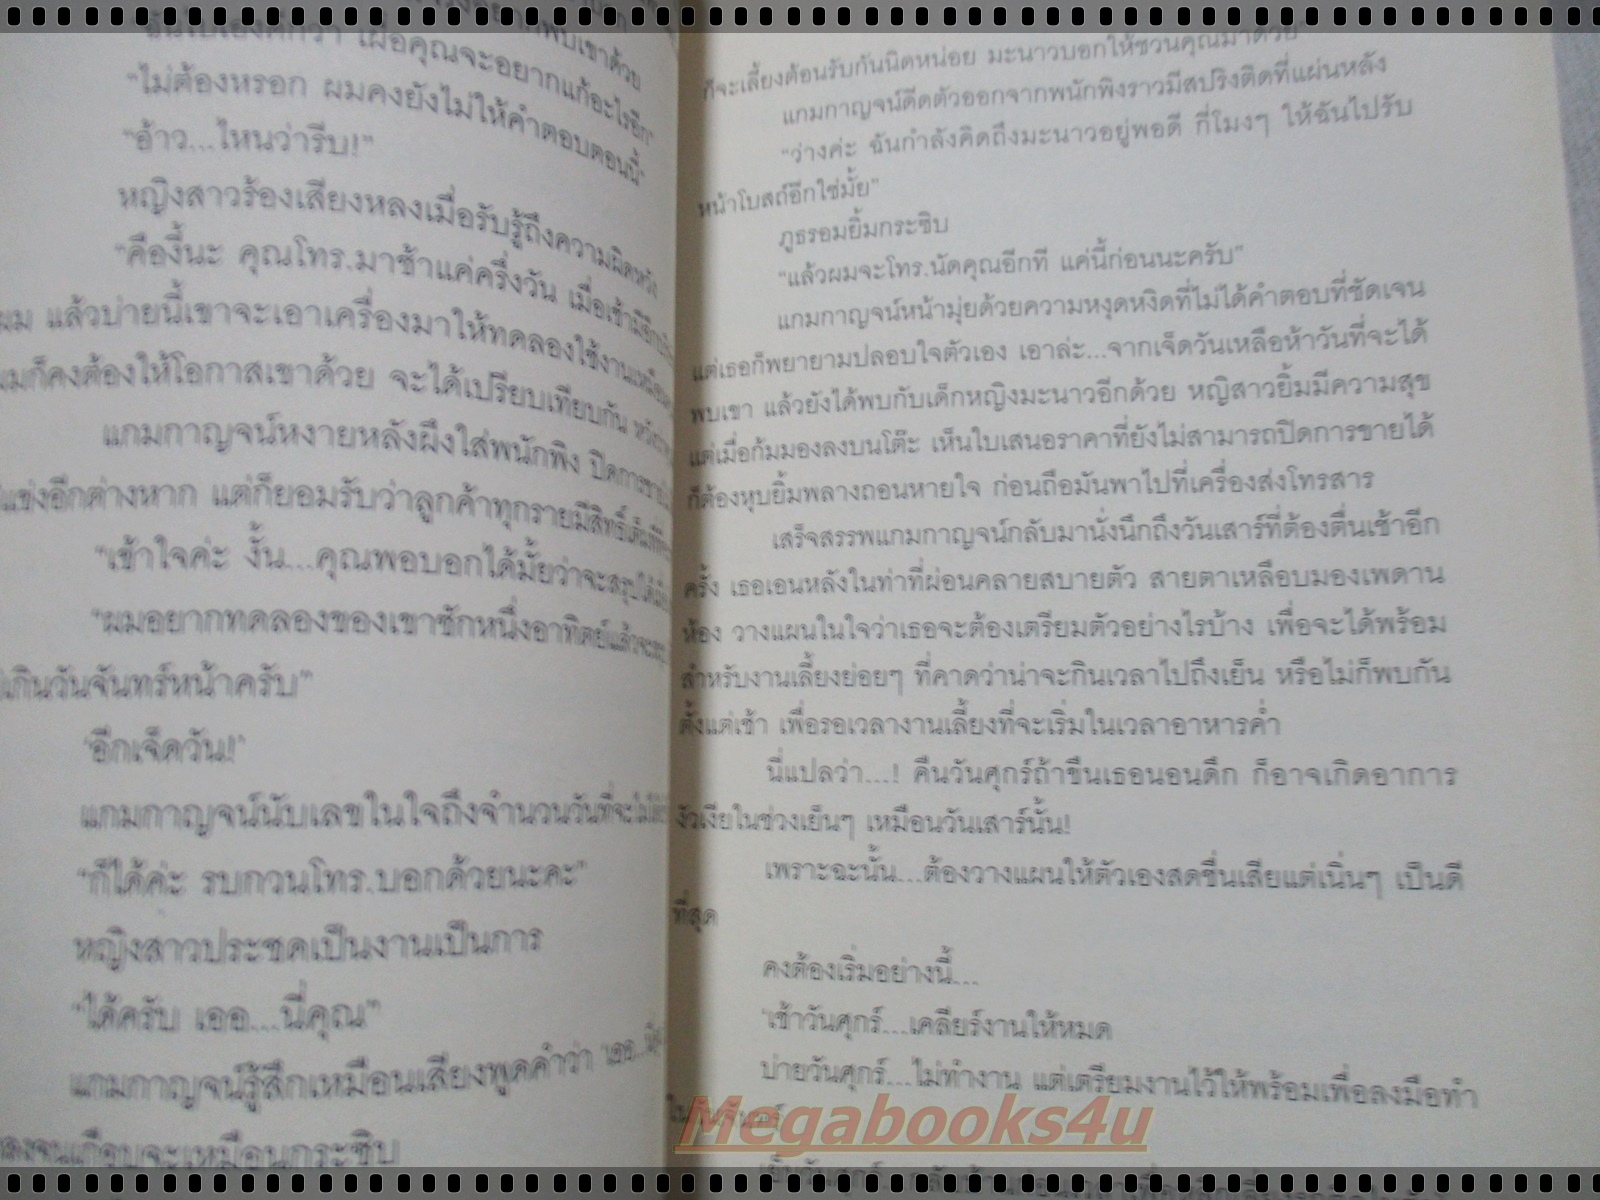 "ไม่ต้องหรอก ผมคงยังไม่ให้คำตอบตอนนี้"
"อ้าว...ไหนว่ารีบ!"
หญิงสาวร้องเสียงหลงเมื่อรับรู้ถึงความผิดหวัง
"คืองี้นะ คุณโทร.มาช้าแค่ครึ่งวัน เมื่อเช้ามีอีก
ผม แล้วบ่ายนี้เขาจะเอาเครื่องมาให้ทดลองใช้งานเหมือน
ผมก็คงต้องให้โอกาสเขาด้วย จะได้เปรียบเทียบกัน
แกมกาญจน์หงายหลังผึ่งใส่พนักพิง ปิดการขาย
แข่งอีกต่างหาก แต่ก็ยอมรับว่าลูกค้าทุกรายมีสิทธิ์เต็มที่
"เข้าใจค่ะ งั้น...คุณพอบอกได้มั้ยว่าจะสรุปได้เมื่อ
"ผมอยากทดลองของเขาซักหนึ่งอาทิตย์แล้วจะ
เกินวันจันทร์หน้าครับ"
'อีกเจ็ดวัน!'
แกมกาญจน์นับเลขในใจถึงจำนวนวันที่จะไม่
"ก็ได้ค่ะ รบกวนโทร.บอกด้วยนะคะ"
หญิงสาวประชดเป็นงานเป็นการ
"ได้ครับ เออ...นี่คุณ"
แกมกาญจน์รู้สึกเหมือนเสียงพูดคำว่า 'เออ...นี่
ลงจนเกือบจะเหมือนกระซิบ
ก็จะเลี้ยงต้อนรับกันนิดหน่อย มะนาวบอกให้ชวนคุณมาด้วย"
แกมกาญจน์ดีดตัวออกจากพนักพิงราวมีสปริงติดที่แผ่นหลัง
"ว่างค่ะ ฉันกำลังคิดถึงมะนาวอยู่พอดี กี่โมงๆ ให้ฉันไปรับ
หน้าโบสถ์อีกใช่มั้ย"
ภูธรอมยิ้มกระซิบ
"แล้วผมจะโทร.นัดคุณอีกที แค่นี้ก่อนนะครับ"
แกมกาญจน์หน้ามุ่ยด้วยความหงุดหงิดที่ไม่ได้คำตอบที่ชัดเจน
แต่เธอก็พยายามปลอบใจตัวเอง เอาล่ะ...จากเจ็ดวันเหลือห้าวันที่จะได้
พบเขา แล้วยังได้พบกับเด็กหญิงมะนาวอีกด้วย หญิสาวยิ้มมีความสุข
แต่เมื่อก้มมองลงบนโต๊ะ เห็นใบเสนอราคาที่ยังไม่สามารถปิดการขายได้
ก็ต้องหุบยิ้มพลางถอนหายใจ ก่อนถือมันพาไปที่เครื่องส่งโทรสาร
เสร็จสรรพแกมกาญจน์กลับมานั่งนึกถึงวันเสาร์ที่ต้องตื่นเช้าอีก
ครั้ง เธอเอนหลังในท่าที่ผ่อนคลายสบายตัว สายตาเหลือบมองเพดาน
ห้อง วางแผนในใจว่าเธอจะต้องเตรียมตัวอย่างไรบ้าง เพื่อจะได้พร้อม
สำหรับงานเลี้ยงย่อยๆ ที่คาดว่าน่าจะกินเวลาไปถึงเย็น หรือไม่ก็พบกัน
ตั้งแต่เช้า เพื่อรอเวลางานเลี้ยงที่จะเริ่มในเวลาอาหารค่ำ
นี่แปลว่า...! คืนวันศุกร์ถ้าขืนเธอนอนดึก ก็อาจเกิดอาการ
งัวเงียในช่วงเย็นๆ เหมือนวันเสาร์นั้น!
เพราะฉะนั้น...ต้องวางแผนให้ตัวเองสดชื่นเสียแต่เนิ่นๆ เป็นดี
ที่สุด
คงต้องเริ่มอย่างนี้...
'เช้าวันศุกร์...เคลียร์งานให้หมด
บ่ายวันศุกร์...ไม่ทำงาน แต่เตรียมงานไว้ให้พร้อมเพื่อลงมือทำ
Megabooks4u